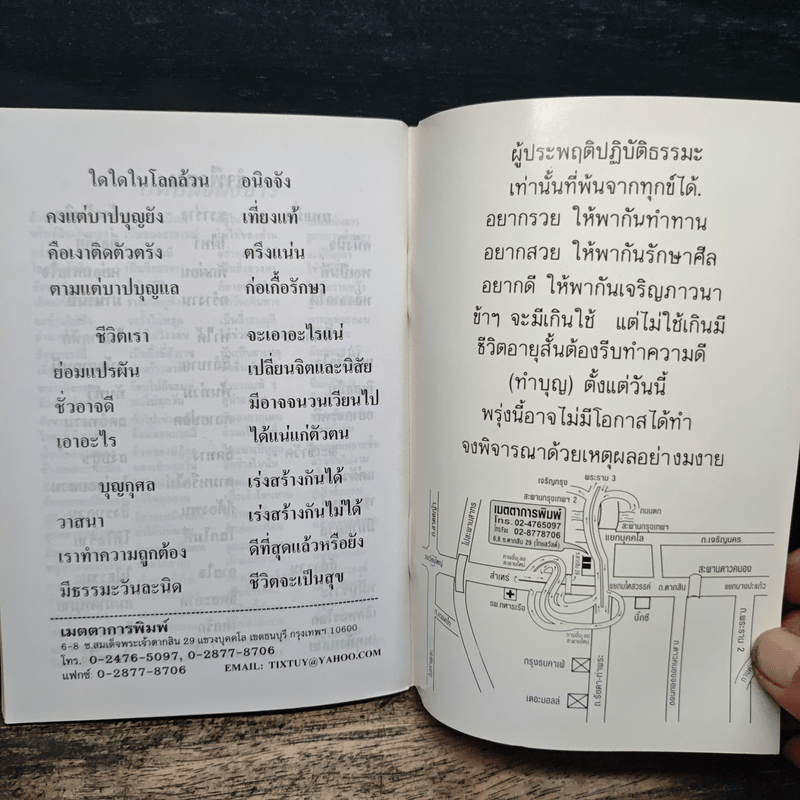 ใดใดในโลกล้วน อนิจจัง
คงแต่บาปบุญยัง เที่ยงแท้
คือเงาติดตัวตรัง ตรึงแน่น
ตามแต่บาปบุญแล ก่อเกื้อรักษา
ชีวิตเรา จะเอาอะไรแน่
ย่อมแปรผัน เปลี่ยนจิตและนิสัย
ชั่วอาจดี มีอาจจนวนเวียนไป
เอาอะไร ได้แน่แก่ตัวตน
บุญกุศล เร่งสร้างกันได้
วาสนา เร่งสร้างกันไม่ได้
เราทำความถูกต้อง ดีที่สุดแล้วหรือยัง
มีธรรมะวันละนิด ชีวิตจะเป็นสุข
เมตตาการพิมพ์
6-8 ซ.สมเด็จพระเจ้าตากสิน 29 แขวงบุคคโล เขตธนบุรี กรุงเทพฯ 10600
โทร. 0-2476-5097, 0-2877-8706
แฟกซ์: 0-2877-8706 EMAIL: TIXTUY@YAHOO.COM
ผู้ประพฤติปฏิบัติธรรมะ
เท่านั้นที่พ้นจากทุกข์ได้.
อยากรวย ให้พากันทำทาน
อยากสวย ให้พากันรักษาศีล
อยากดี ให้พากันเจริญภาวนา
ข้าฯ จะมีเกินใช้ แต่ไม่ใช้เกินมี
ชีวิตอายุสั้นต้องรีบทำความดี
(ทำบุญ) ตั้งแต่วันนี้
พรุ่งนี้อาจไม่มีโอกาสได้ทำ
จงพิจารณาด้วยเหตุผลอย่างมงาย
พระราม 3
เจริญกรุง
สะพานกรุงเทพฯ 2
ถนนตก
สะพานกรุงเทพฯ
เมตตาการพิมพ์
โทร. 02-4765097
โทร/Fax 02-8778706
6,8 ซ.ตากสิน 29 (โกยสวัสดิ์)
แยกบุคคโล
ถ.เจริญนคร
สะพานดาวคนอง
สำเหร่
แยกมไหสวรรค์
ถ.ตากสิน
แยกบางปะแก้ว
รพ.ทหารเรือ
บิ๊กซี
ถ.พระราม 2
กรุงธนคาเฟ่
เดอะมอลล์
ถ.รัชดา-ท่าพระ